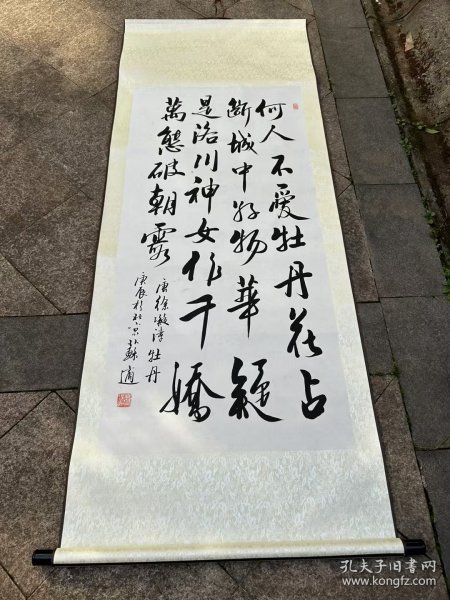 何人不愛牡丹花占
断城中好物華疑
是洛川神女作千嬌
萬態破朝霞
唐徐凝詩牡丹
庚辰於北京蘇適
孔夫子旧书网
www.kongfz.com